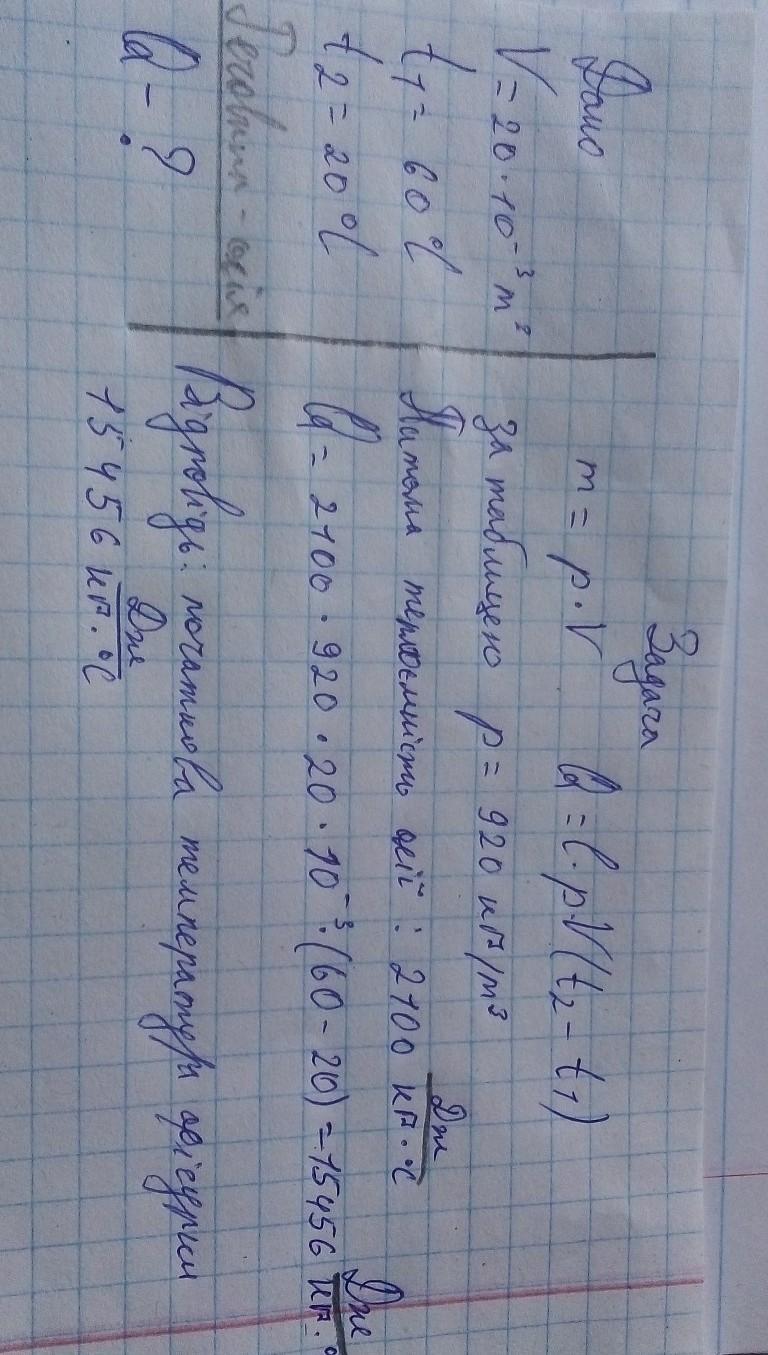 Задача
Дано
V = 20 · 10⁻³ m³
t₁ = 60 °C
t₂ = 20 °C
Речовина - олія
Q - ?
m = p · V Q = C · pV(t₂ - t₁)
За таблицею p = 920 кг/m³
Питома теплоємність олії : 2100 Дж/кг·°C
Q = 2100 · 920 · 20 · 10⁻³ · (60 - 20) = 15456 Дж/кг·°
Відповідь: початкова температура
15456 Дж/кг·°C